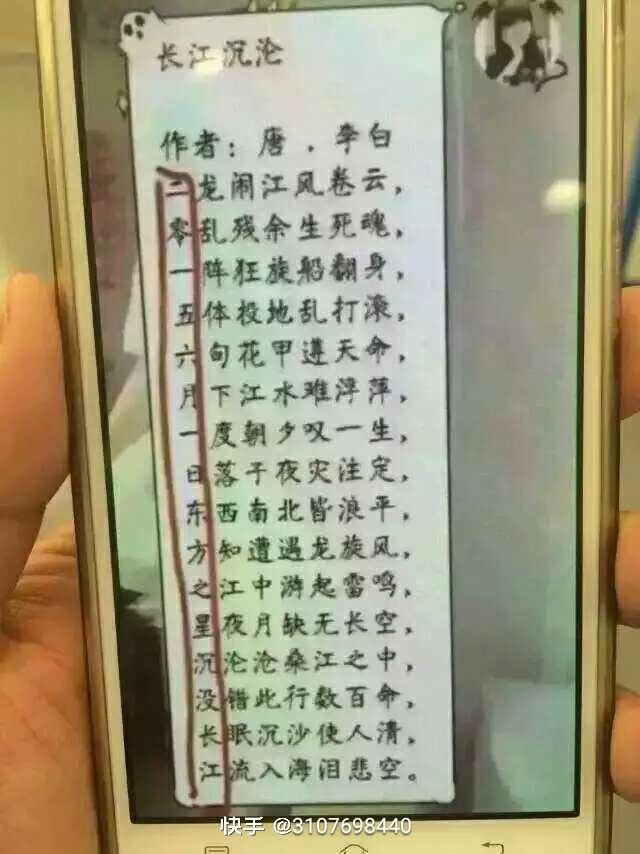 长江沉沦
作者：唐．李白
二龙闹江风卷云，
零乱残余生死魂，
一阵狂旋船翻身，
五体投地乱打滚，
六旬花甲遵天命，
月下江水难浮萍，
一度朝夕叹一生，
日落子夜灾注定，
东西南北皆浪平，
方知遭遇龙旋风，
之江中游起雷鸣，
星夜月缺无长空，
沉沦沧桑江之中，
没错此行数百命，
长眠沉沙使人清，
江流入海泪悲空。
快手 @3107698440